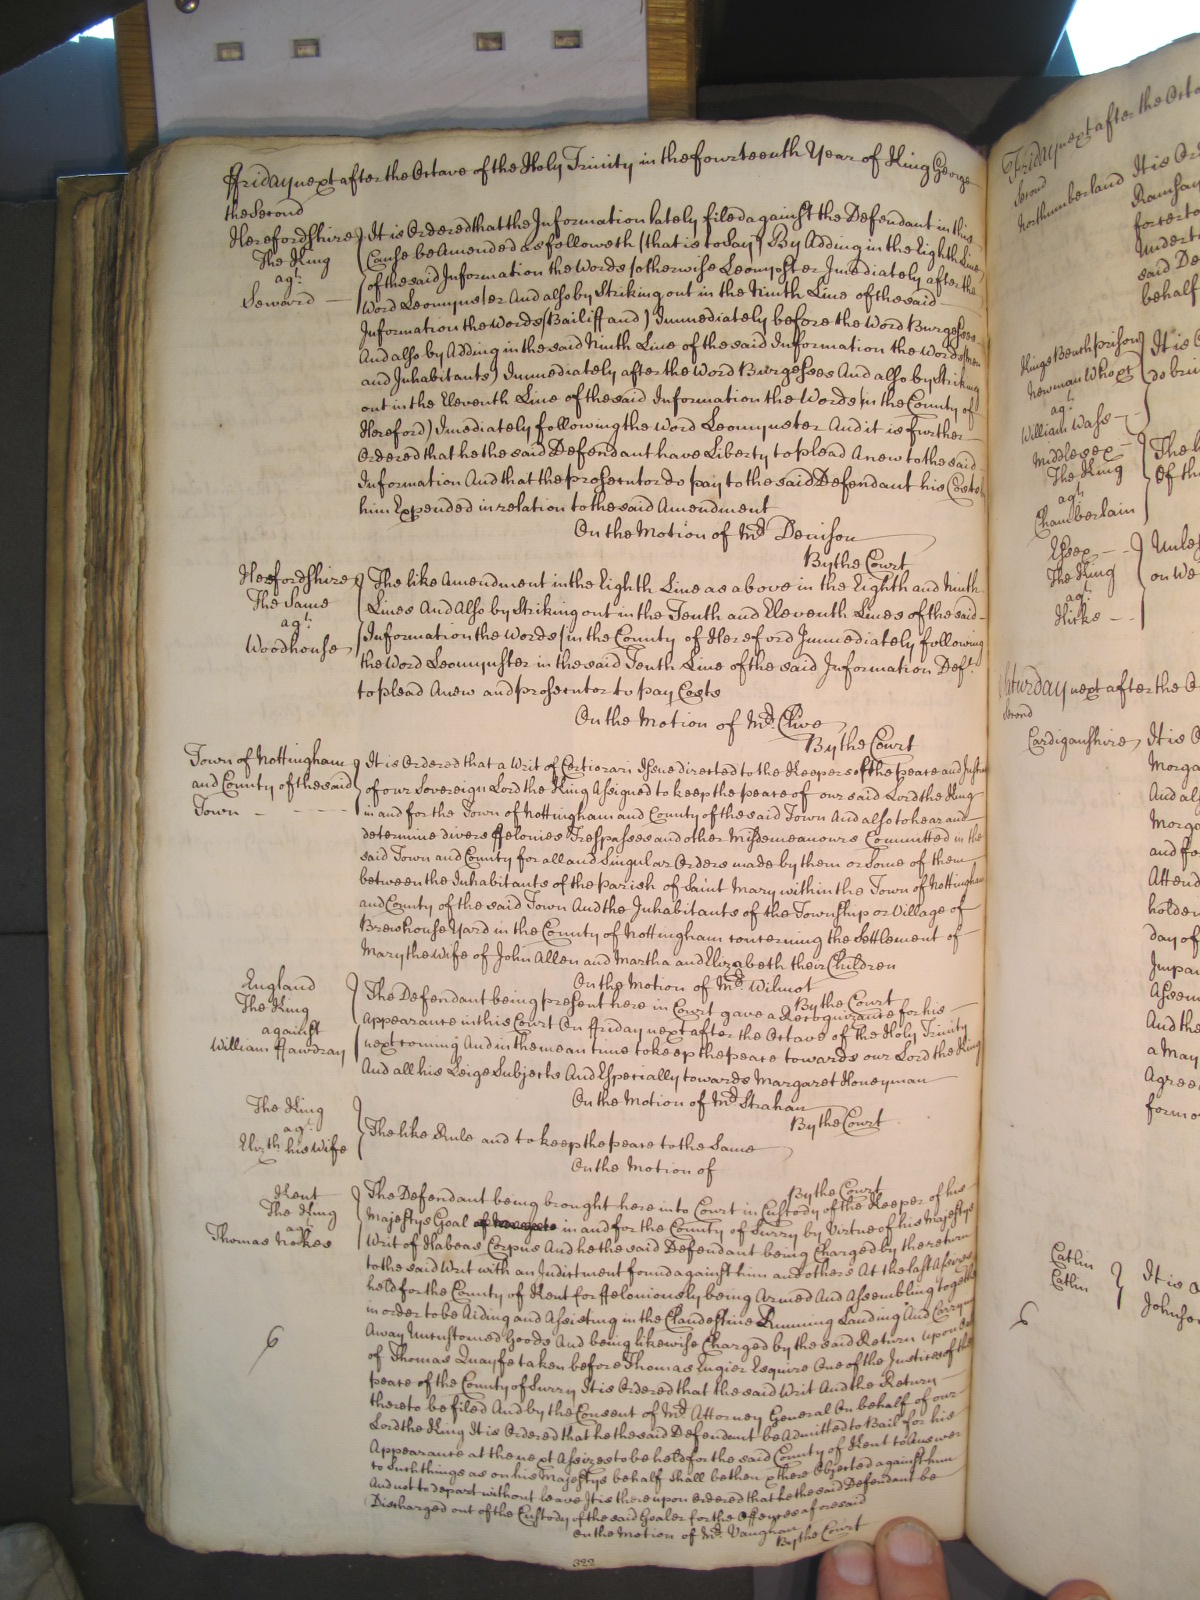 Fridaynext after the Octave of the Holy Trinity in the fourteenth Year of King George
the Second
Herefordshire
The King
agt.
Seward
It is Ordered that the Information lately filed against the Defendant in this
Cause be Amended as followeth (that is to Say) By Adding in the Eighth Line
of the said Information the Words (otherwise Leomynster Imediately after the
Word Leomynster And also by Striking out in the Ninth Line of the said
Information the Words (Bailiff and) Immediately before the Word Burgesses
And also by Adding in the said Ninth Line of the said Information the Words
and Inhabitants) Immediately after the Word Burgesses And also by Striking
out in the Eleventh Line of the said Information the Words in the County of
Hereford) Imediately following the Word Leomynster And it is further
Ordered that he the said Defendant have Liberty to plead Anew to the said
Information And that the prosecutor do pay to the said Defendant his Costs
him Expended in relation to the said Amendment
On the Motion of Mr. Denison
By the Court
Herefordshire
The Same
agt.
Woodhouse
The like Amendment in the Eighth Line as above in the Eighth and Ninth
Lines And Also by Striking out in the Tenth and Eleventh Lines of the said
Information the Words (in the County of Hereford Immediately following
the Word Leomynster in the said Tenth Line of the said Information Deft.
to plead Anew and prosecutor to pay Costs
On the Motion of Mr. Clive
By the Court
Town of Nottingham
and County of the said
Town
It is Ordered that a Writ of Certiorari Issue directed to the Keepers of the peace and Justices
of our Sovereign Lord the King Assigned to keep the peace of our said Lord the King
in and for the Town of Nottingham and County of the said Town And also to hear and
determine divers ffelonies Trespasses and other Misdemeanours Committed in the
said Town and County for all and Singular Orders made by them or Some of them
between the Inhabitants of the parish of Saint Mary within the Town of Nottingham
and County of the said Town And the Inhabitants of the Township or Village of
Brewhouse Yard in the County of Nottingham concerning the Settlement of
Mary the Wife of John Allen and Martha and Elizabeth their Children
On the Motion of Mr. Wilmot
By the Court
England
The King
against
William ffawdray
The Defendant being present here in Court gave a Recognizance for his
Appearance in this Court On ffriday next after the Octave of the Holy Trinity
next coming And in the mean time to keep the peace towards our Lord the King
And all his Leige Subjects And Especially towards Margaret Honeyman
On the Motion of Mr. Strahan
By the Court
The King
agt.
Elizth. his Wife
The like Rule and to keep the peace to the Same
On the Motion of
By the Court
Kent
The King
agt.
Thomas Nokes
The Defendant being brought here into Court in Custody of the Keeper of his
Majestys Goal in and for the County of Surry by Virtue of his Majestys
Writ of Habeas Corpus And he the said Defendant being Charged by the return
to the said Writ with an Indictment found against him and others At the last Assizes
held for the County of Kent for ffeloniously being Armed And Assembling together
in order to be Aiding and Assisting in the Clandestine Running Landing And Carrying
Away Uncustomed Goods And being likewise Charged by the said Return upon
of Thomas Quayfe taken before Thomas Engier Esquire One of the Justices of the
peace of the County of Surry It is Ordered that the said Writ And the Return
thereto be filed And by the Consent of Mr. Attorney General On behalf of our
Lord the King It is Ordered that he the said Defendant be Admitted to Bail for his
Appearance at the next Assizes to be held for the said County of Kent to Answer
to Such things as on his Majestys behalf shall be then & there Objected against him
And not to depart without leave It is thereupon ordered that he the said Defendant be
Discharged out of the Custody of the said Goaler for the Offences aforesaid
On the Motion of Mr. Vaughan
By the Court
6
322
Friday next after the Octa
Second
Northumberland
It is Or
Ramsay
undert
said De
behalf
Kings Bench prison
Newman
agt.
William Wass
It is O
do brin
Middlesex
The King
agt.
Chamberlain
The
Of th
Essex
The King
agt.
Hicks
Unles
on We
Saturday next after the O
Second
Cardiganshire
It is O
Morga
And al
Morga
and fo
Attend
holden
day of
Impa
Assem
And the
a May
Agree
form o
Catlin
Catlin
It is O
Johnso
6